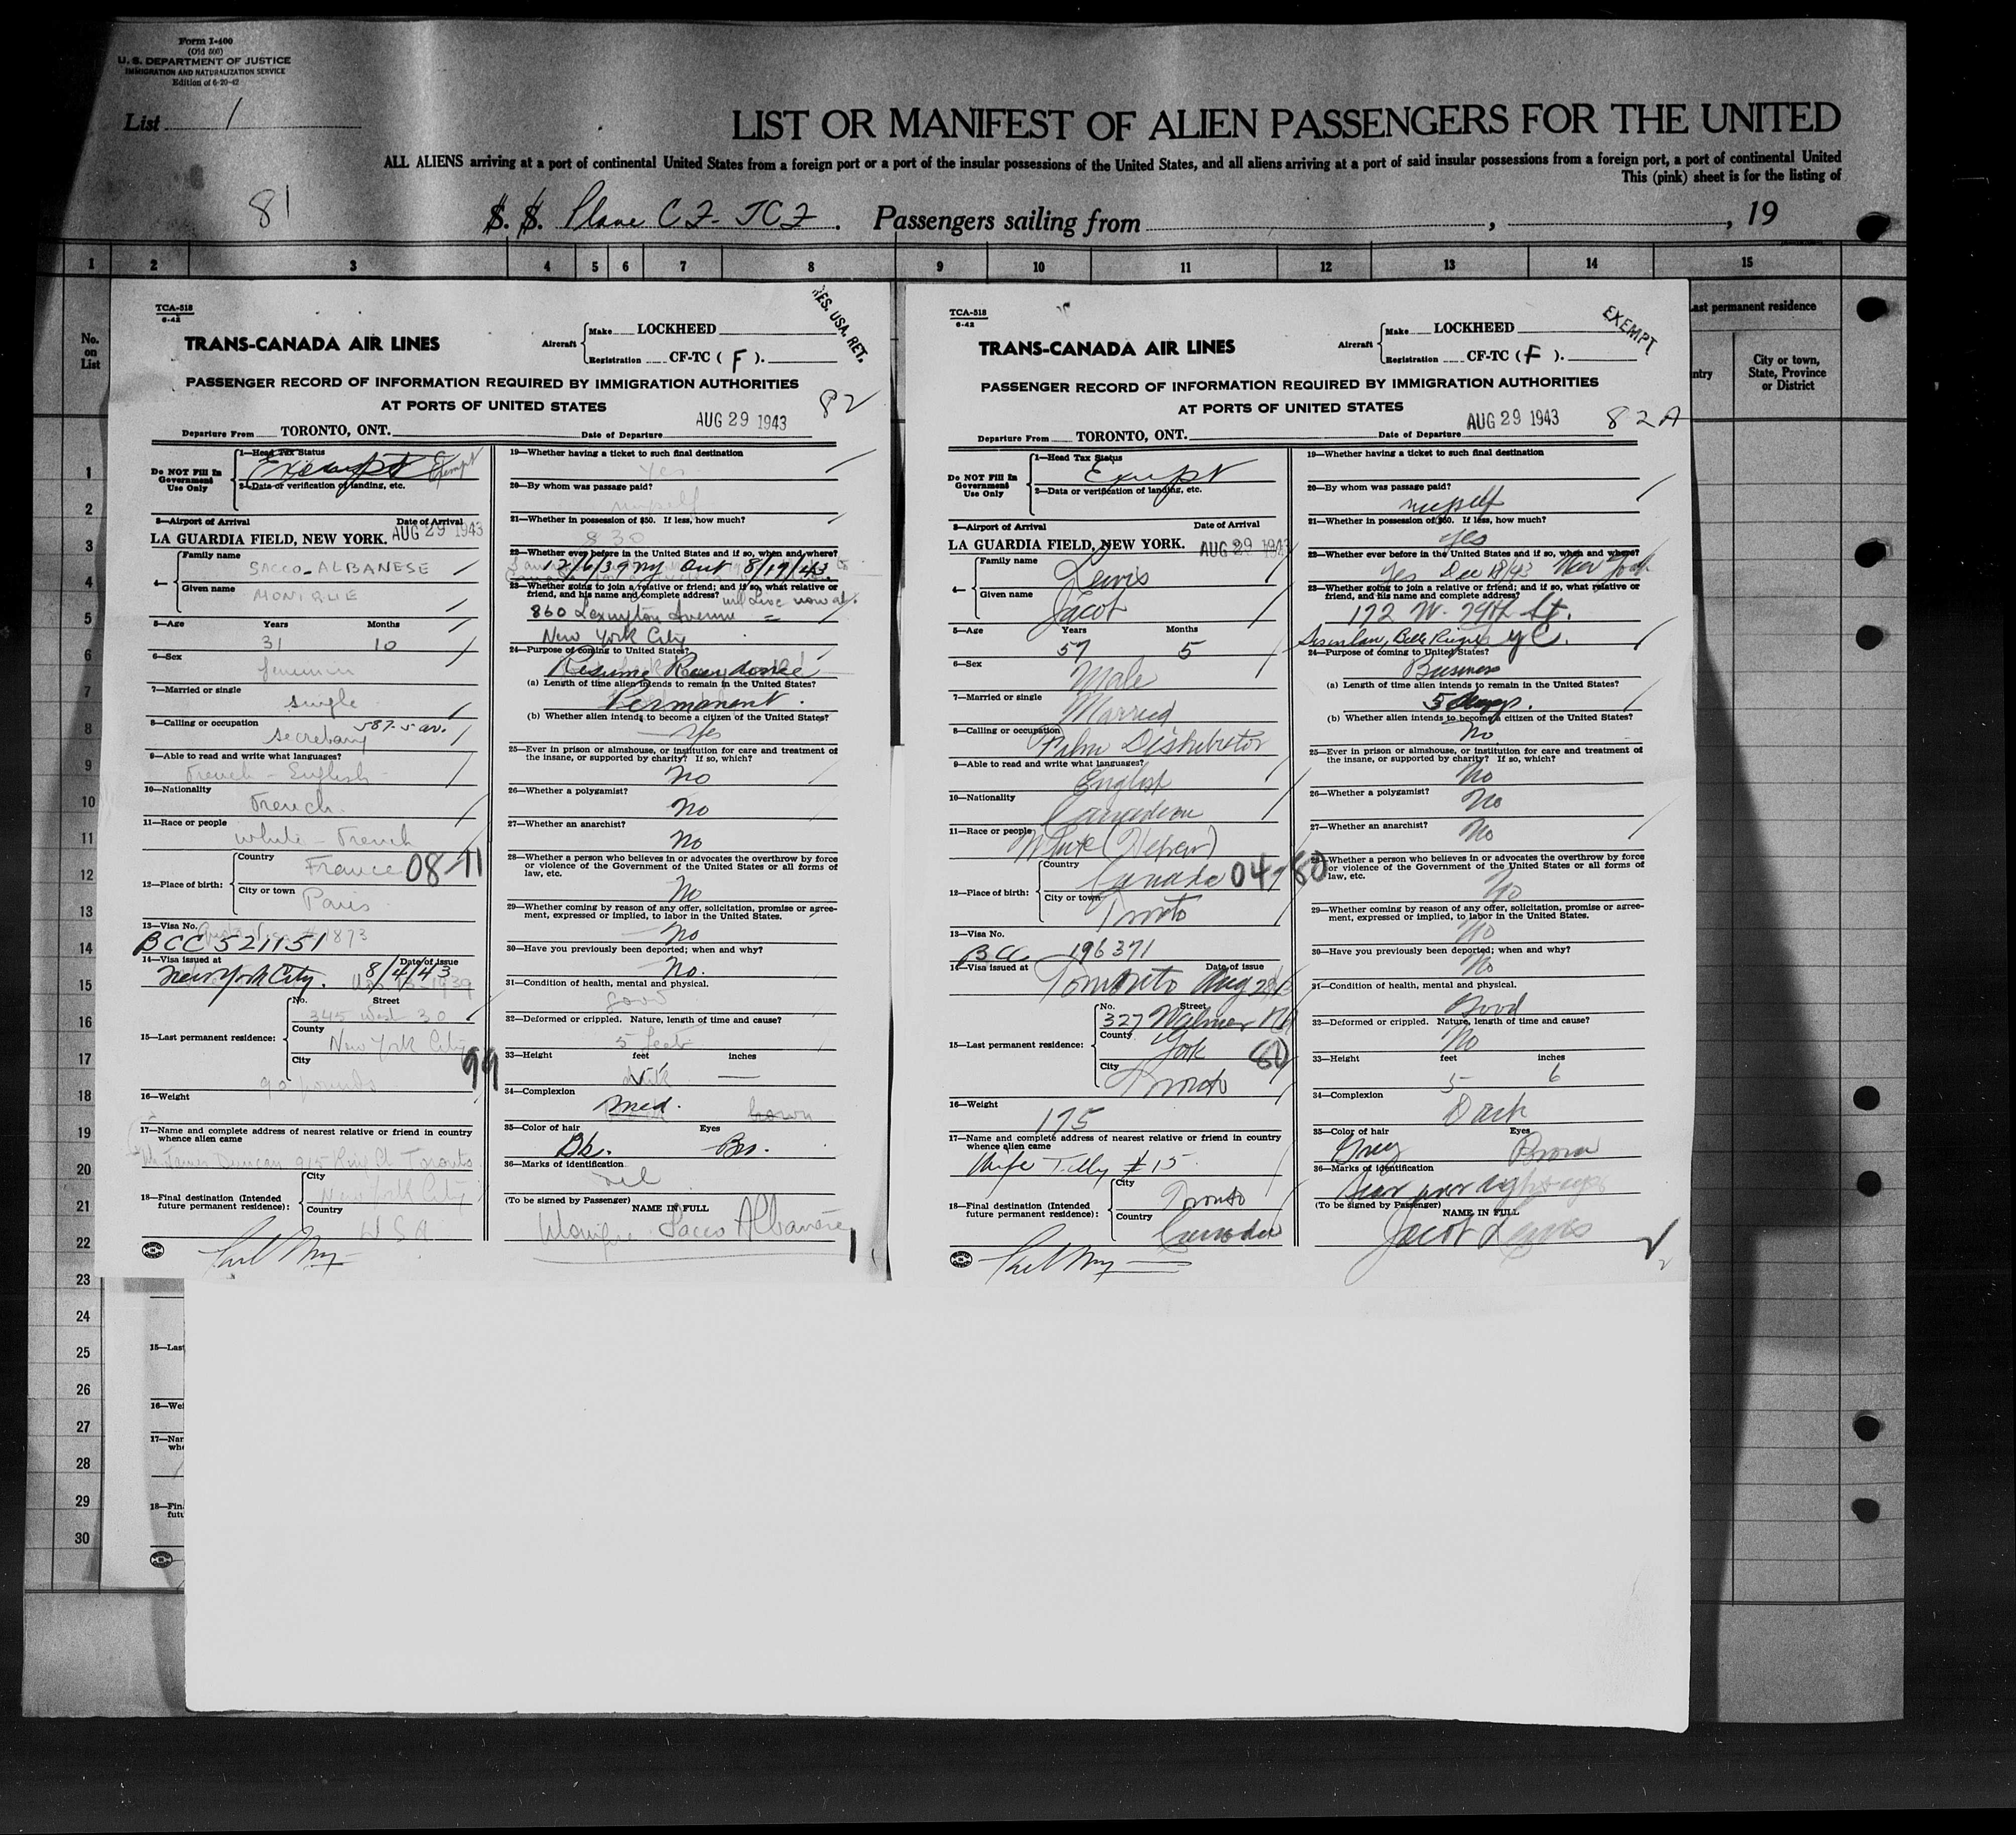 Form I-400
(Old 500)
U. S. DEPARTMENT OF JUSTICE
IMMIGRATION AND NATURALIZATION SERVICE
Edition of 6-20-42
List 1
LIST OR MANIFEST OF ALIEN PASSENGERS FOR THE UNITED
ALL ALIENS arriving at a port of continental United States from a foreign port or a port of the insular possessions of the United States, and all aliens arriving at a port of said insular possessions from a foreign port, a port of continental United
This (pink) sheet is for the listing of
81
S. S. Plane Passengers sailing from , , 19
1 2 3 4 5 6 7 8 9 10 11 12 13 14 15
No. on List
Last permanent residence
City or town, State, Province or District
TCA-518
6-42
RES. USA. RET.
TRANS-CANADA AIR LINES
Aircraft Make LOCKHEED
Registration CF-TC ( F ).
PASSENGER RECORD OF INFORMATION REQUIRED BY IMMIGRATION AUTHORITIES
AT PORTS OF UNITED STATES
82
Departure From TORONTO, ONT. Date of Departure AUG 29 1943
Do NOT Fill In Government Use Only
1—Head Tax Status
Exempt Exempt
2—Data or verification of landing, etc.
3—Airport of Arrival Date of Arrival
LA GUARDIA FIELD, NEW YORK. AUG 29 1943
4— Family name
SACCO-ALBANESE
Given name
MONIQUE
5—Age Years Months
31 10
6—Sex
7—Married or single
single
8—Calling or occupation
secretary
9—Able to read and write what languages?
French - English
10—Nationality
French
11—Race or people
white - French
12—Place of birth: Country
France 08-11
City or town
Paris
13—Visa No.
BCC 521151
14—Visa issued at Date of issue
New York City. 8/4/43
15—Last permanent residence: No. Street
345 West 30
County
New York City
City
99
90 pounds
16—Weight
17—Name and complete address of nearest relative or friend in country
whence alien came
Duncan Toronto
18—Final destination (Intended
future permanent residence): City
New York City
Country
USA
19—Whether having a ticket to such final destination
Yes
20—By whom was passage paid?
myself
21—Whether in possession of $50. If less, how much?
$ 30
22—Whether ever before in the United States and if so, when and where?
12/6/39 NY Out 8/19/43.
23—Whether going to join a relative or friend; and if so, what relative or
friend, and his name and complete address? will Live now at.
860 Lexington Avenue
New York City
24—Purpose of coming to United States?
Resume Residence
(a) Length of time alien intends to remain in the United States?
Permanent.
(b) Whether alien intends to become a citizen of the United States?
Yes
25—Ever in prison or almshouse, or institution for care and treatment of
the insane, or supported by charity? If so, which?
No
26—Whether a polygamist?
No
27—Whether an anarchist?
No
28—Whether a person who believes in or advocates the overthrow by force
or violence of the Government of the United States or all forms of
law, etc.
No
29—Whether coming by reason of any offer, solicitation, promise or agree-
ment, expressed or implied, to labor in the United States.
No
30—Have you previously been deported; when and why?
No.
31—Condition of health, mental and physical.
good
32—Deformed or crippled. Nature, length of time and cause?
5 feet
33—Height feet inches
34—Complexion
Med. brown
35—Color of hair Eyes
Bk. Br.
36—Marks of identification
nil
(To be signed by Passenger) NAME IN FULL
Monique Sacco Albanese
TCA-518
6-42
EXEMPT
TRANS-CANADA AIR LINES
Aircraft Make LOCKHEED
Registration CF-TC ( F ).
PASSENGER RECORD OF INFORMATION REQUIRED BY IMMIGRATION AUTHORITIES
AT PORTS OF UNITED STATES
82 A
Departure From TORONTO, ONT. Date of Departure AUG 29 1943
Do NOT Fill In Government Use Only
1—Head Tax Status
Exempt
2—Data or verification of landing, etc.
3—Airport of Arrival Date of Arrival
LA GUARDIA FIELD, NEW YORK. AUG 29 1943
4— Family name
Lewis
Given name
Jacob
5—Age Years Months
57 5
6—Sex
Male
7—Married or single
Married
8—Calling or occupation
Film Distributor
9—Able to read and write what languages?
English
10—Nationality
Canadian
11—Race or people
White (Hebrew)
12—Place of birth: Country
Canada 04-80
City or town
Toronto
13—Visa No.
BCC 196371
14—Visa issued at Date of issue
Toronto Aug
15—Last permanent residence: No. Street
327 Walmer Rd
County
York 80
City
Toronto
16—Weight
175
17—Name and complete address of nearest relative or friend in country
whence alien came
Wife Tilly # 15
18—Final destination (Intended
future permanent residence): City
Toronto
Country
Canada
19—Whether having a ticket to such final destination
20—By whom was passage paid?
myself
21—Whether in possession of $50. If less, how much?
Yes
22—Whether ever before in the United States and if so, when and where?
Yes Dec New York
23—Whether going to join a relative or friend; and if so, what relative or
friend, and his name and complete address?
172 W. 79th St.
24—Purpose of coming to United States?
Business
(a) Length of time alien intends to remain in the United States?
5 days.
(b) Whether alien intends to become a citizen of the United States?
No
25—Ever in prison or almshouse, or institution for care and treatment of
the insane, or supported by charity? If so, which?
No
26—Whether a polygamist?
No
27—Whether an anarchist?
No
28—Whether a person who believes in or advocates the overthrow by force
or violence of the Government of the United States or all forms of
law, etc.
No
29—Whether coming by reason of any offer, solicitation, promise or agree-
ment, expressed or implied, to labor in the United States.
No
30—Have you previously been deported; when and why?
No
31—Condition of health, mental and physical.
Good
32—Deformed or crippled. Nature, length of time and cause?
No
33—Height feet inches
5 6
34—Complexion
Dark
35—Color of hair Eyes
Grey Brown
36—Marks of identification
Scar over right eye
(To be signed by Passenger) NAME IN FULL
Jacob Lewis
1
2
3
4
5
6
7
8
9
10
11
12
13
14
15
16
17
18
19
20
21
22
23
24
25
26
27
28
29
30
15—Last
16—Wei
17—Nar
whe
18—Fin
futu